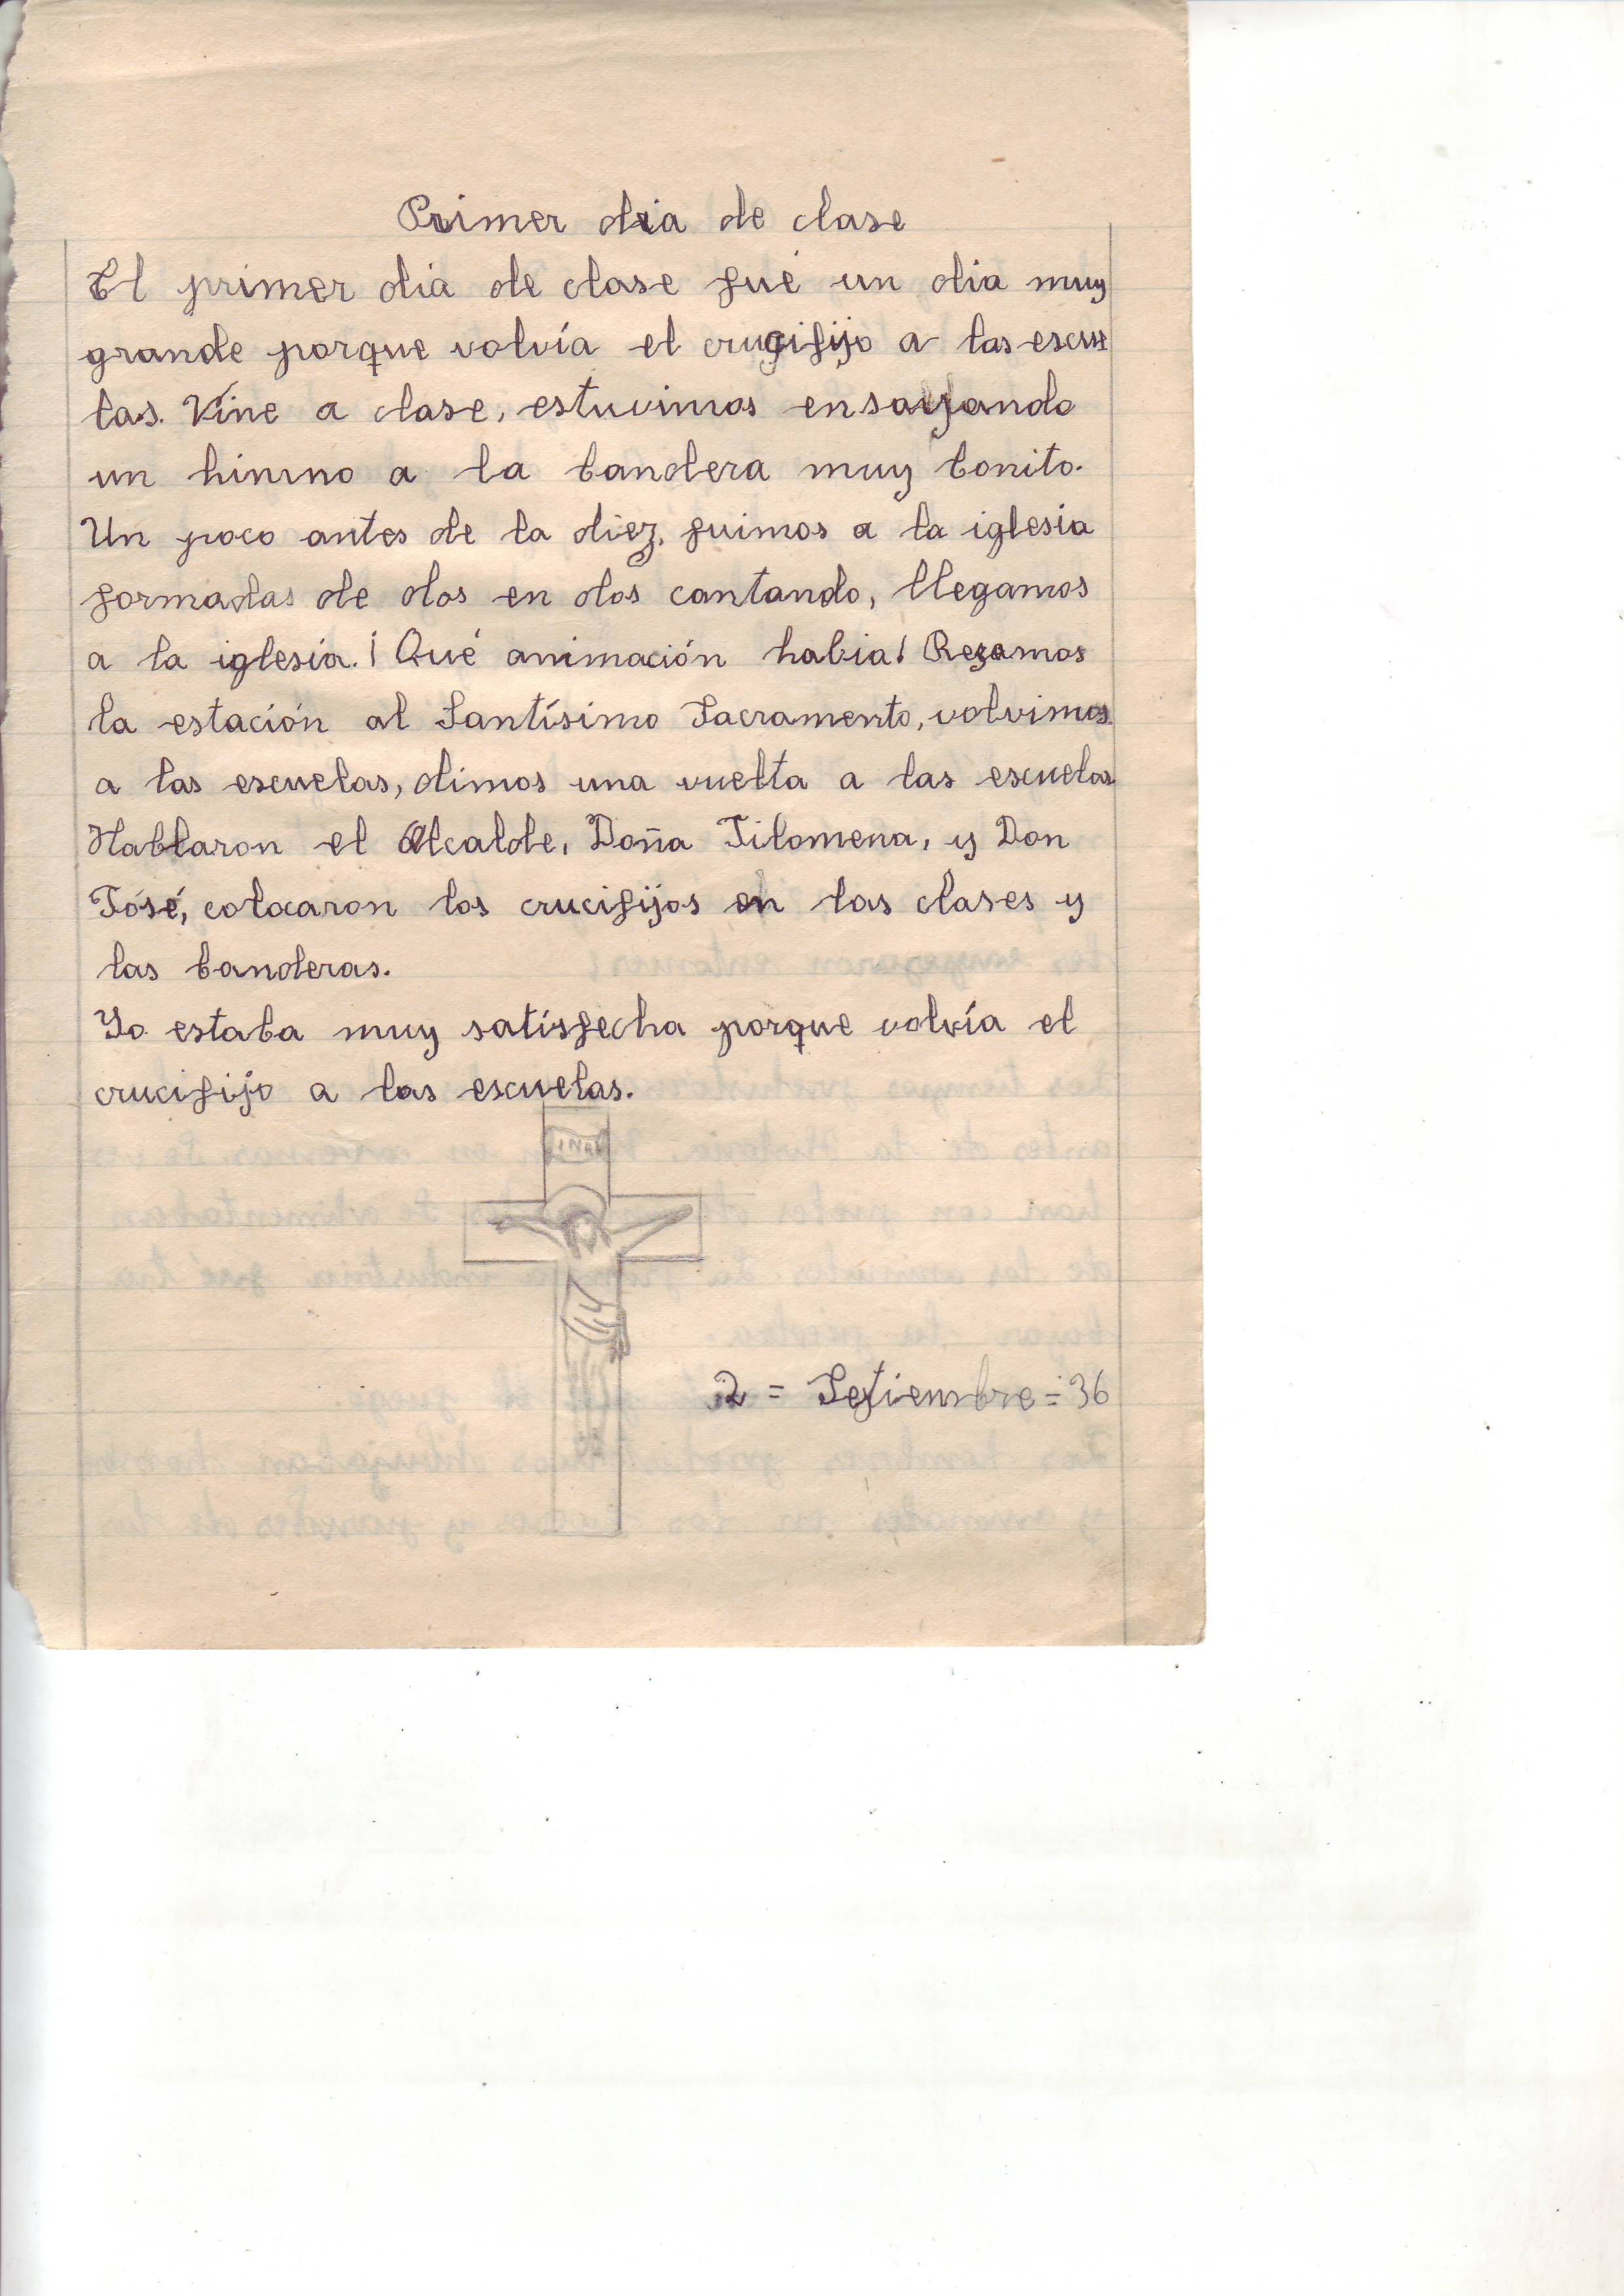 Primer dia de clase
El primer dia de clase fué un dia muy
grande porque volvía el crucifijo a las escue
las. Vine a clase, estuvimos ensayando
un himno a la bandera muy bonito.
Un poco antes de la diez, fuimos a la iglesia
formadas de dos en dos cantando, llegamos
a la iglesia. ¡Qué animación habia! Rezamos
la estación al Santísimo Sacramento, volvimos
a las escuelas, dimos una vuelta a las escuelas
Hablaron el Alcalde, Doña Filomena, y Don
José, colocaron los crucifijos en las clases y
las banderas.
Yo estaba muy satisfecha porque volvía el
crucifijo a las escuelas.
INRI
2 = Setiembre = 36